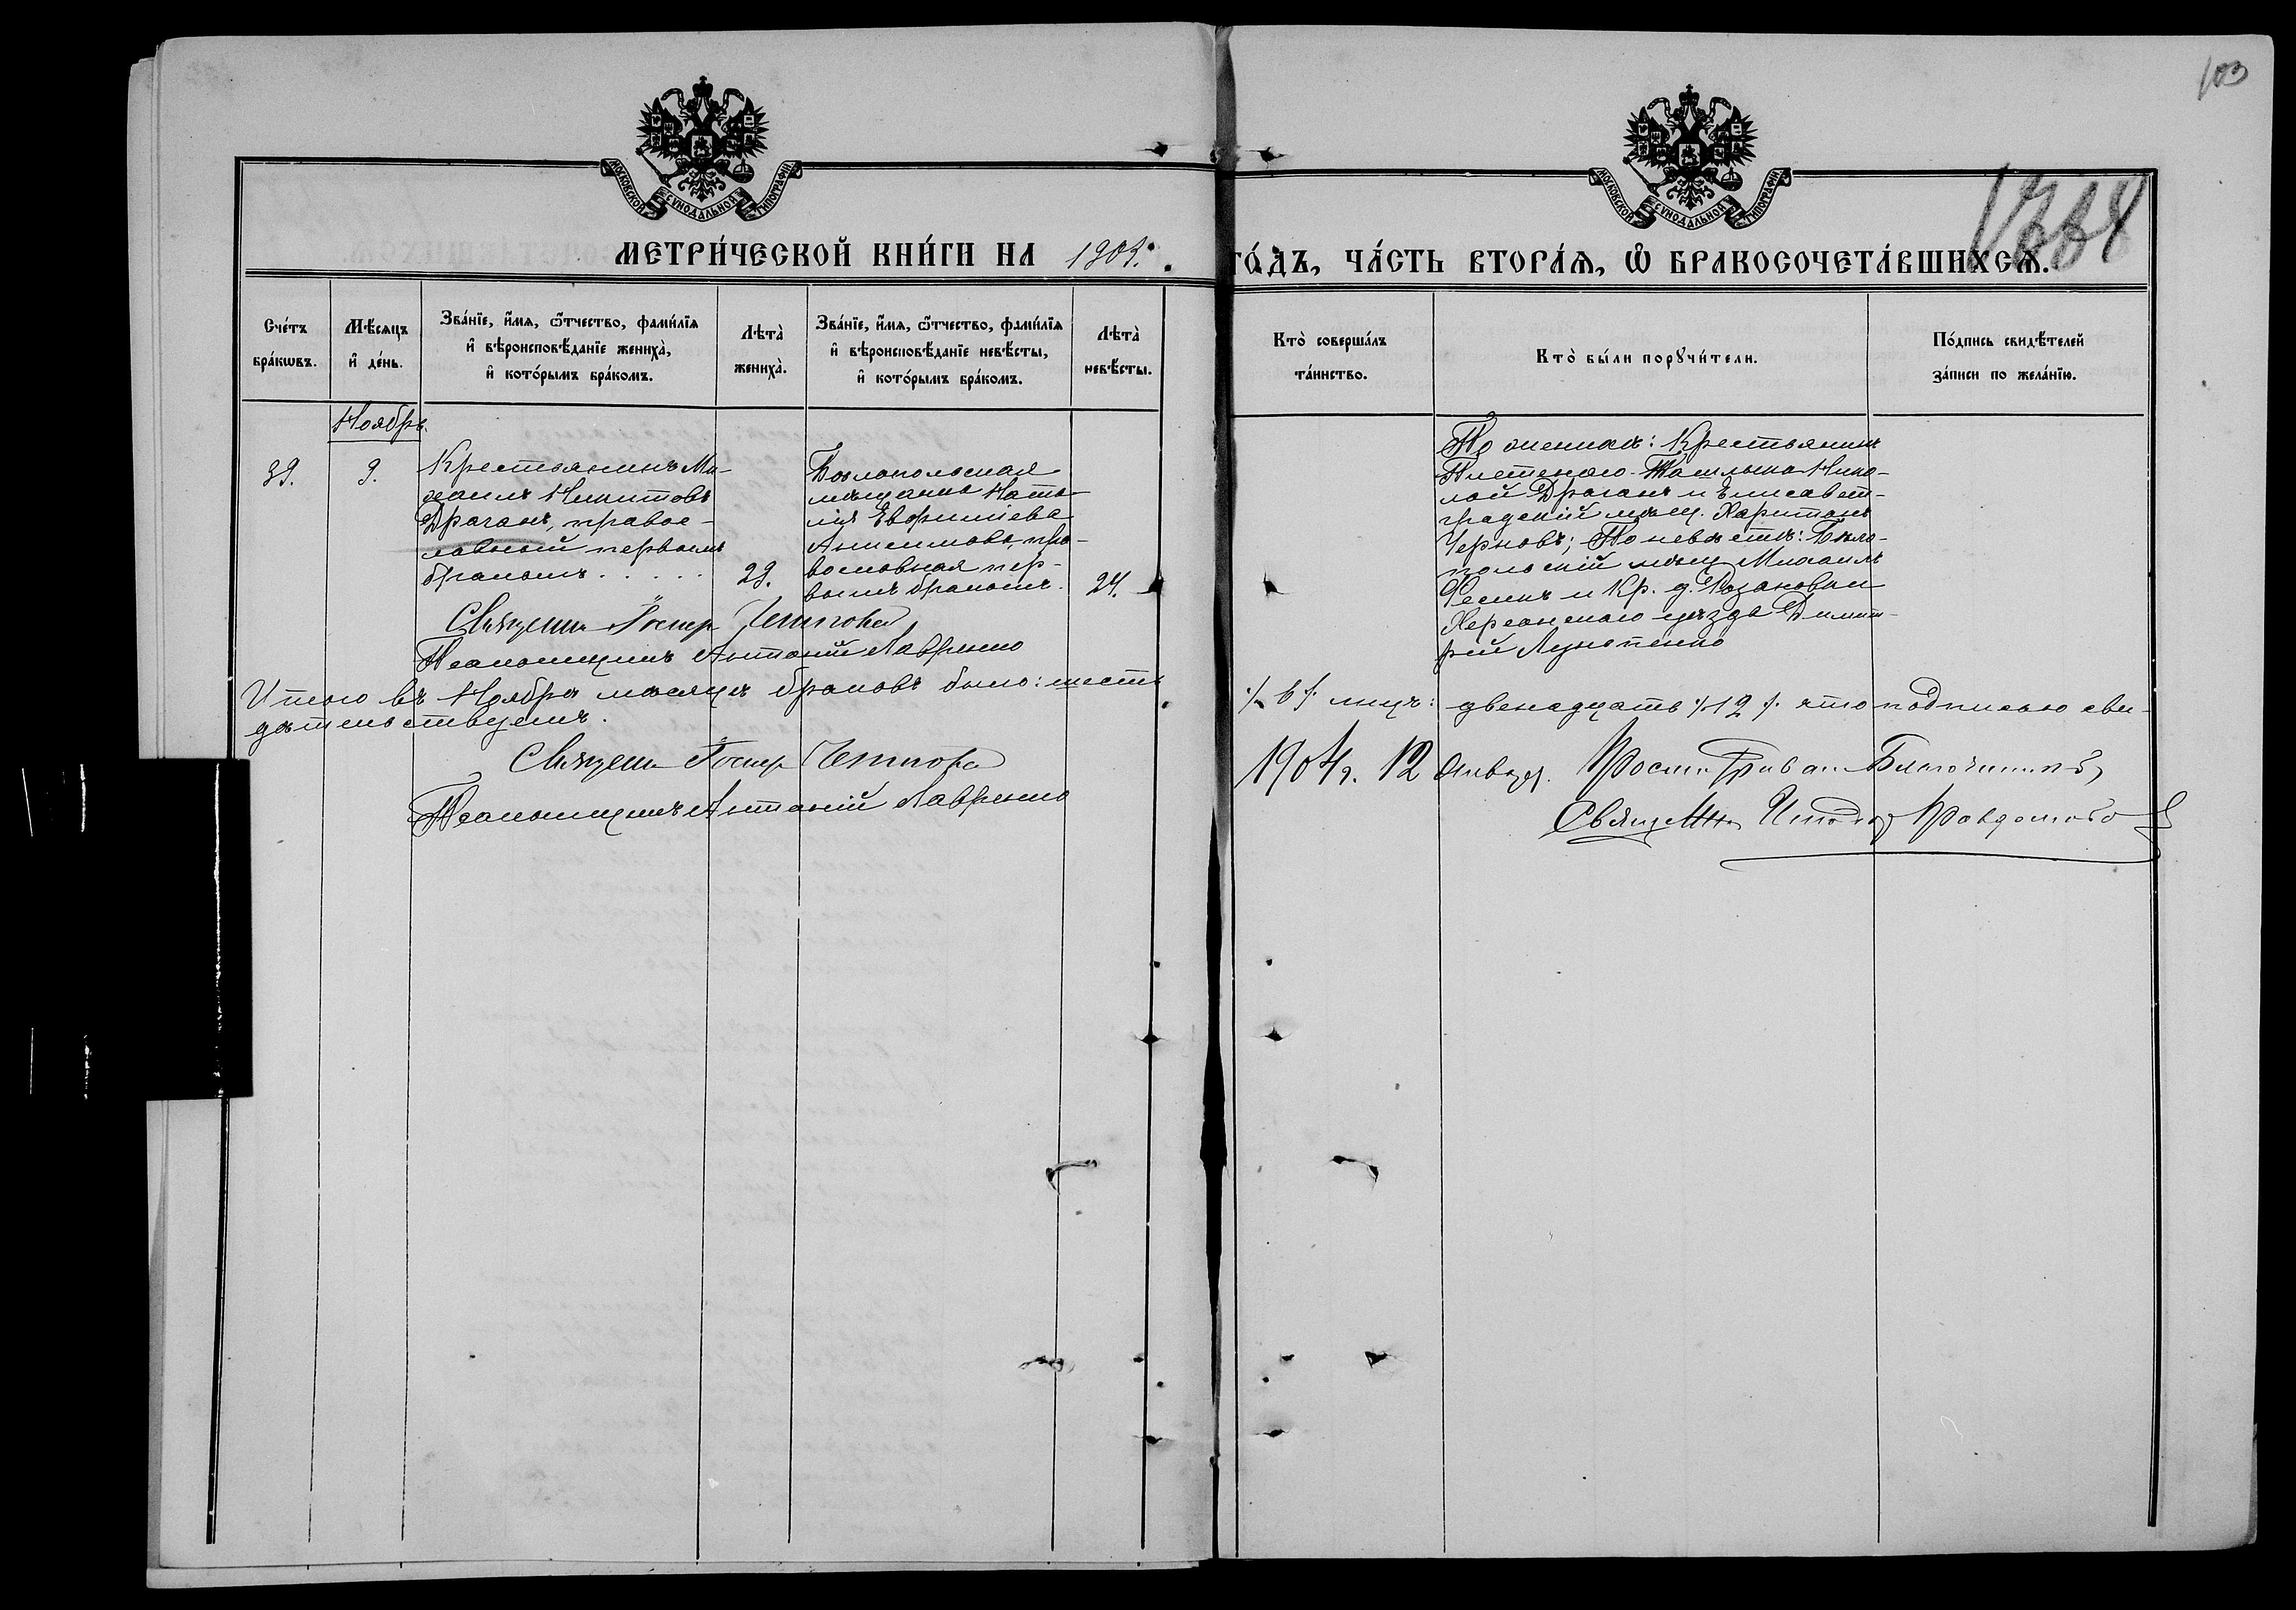 103
МОСКОВСКОЙ СУНОДАЛЬНОЙ ТИПОГРАФІИ
МОСКОВСКОЙ СУНОДАЛЬНОЙ ТИПОГРАФІИ
МЕТРИ́ЧЕСКОЙ КНИ́ГИ НА 1903. ГО́ДЪ, ЧА́СТЬ ВТОРА́Ѧ, Ѽ БРАКОСОЧЕТА́ВШИХСѦ.
Сче́тъ
бра́кѡвъ.
Мѣ́сѧцъ
и҆ де́нь.
Зва́нїе, и҆́мѧ, ѻ҆́тчество, фами́лїѧ
и҆ вѣроисповѣ́данїе жениха̀,
и҆ кото́рымъ бра́комъ.
Лѣта̀
жениха̀.
Зва́нїе, и҆́мѧ, ѻ҆́тчество, фами́лїѧ
и҆ вѣроисповѣ́данїе невѣ́сты,
и҆ кото́рымъ бра́комъ.
Лѣта̀
невѣ́сты.
Кто̀ соверша́лъ
та́инство.
Кто̀ бы́ли порꙋчи́тели.
По́дпись свидѣ́телей
за́писи по жела́нїю.
Ноябрь.
39.
9.
Крестьянинъ Ми-
хаилъ Никитовъ
Драганъ, правос-
лавный первымъ
бракомъ . . . . .
29.
Бѣлопольская
мѣщанка Ната-
лія Евфиміева
Анисимова, пра-
вославная пер-
вымъ бракомъ.
24.
По женихѣ: Крестьянинъ
Плетенаго-Ташлыка Нико-
лай Драганъ и Елисавет-
градскій мѣщ. Харитонъ
Черновъ; По невѣстѣ: Бѣло-
польскій мѣщ. Михаилъ
Фесикъ и Кр. д. Козановки
Херсонскаго уѣзда Димит-
рій
Священ
Псаломщикъ Антоній Лавренко
Итого въ Ноябрѣ мѣсяцѣ браковъ было: шесть ./. 6 ./. лицъ: двенадцать ./. 12 ./. что подписью сви-
дѣтельствуемъ.
Священ
Псаломщикъ Антоній Лавренко
1904 г. 12 Января. Благочинный
Священ